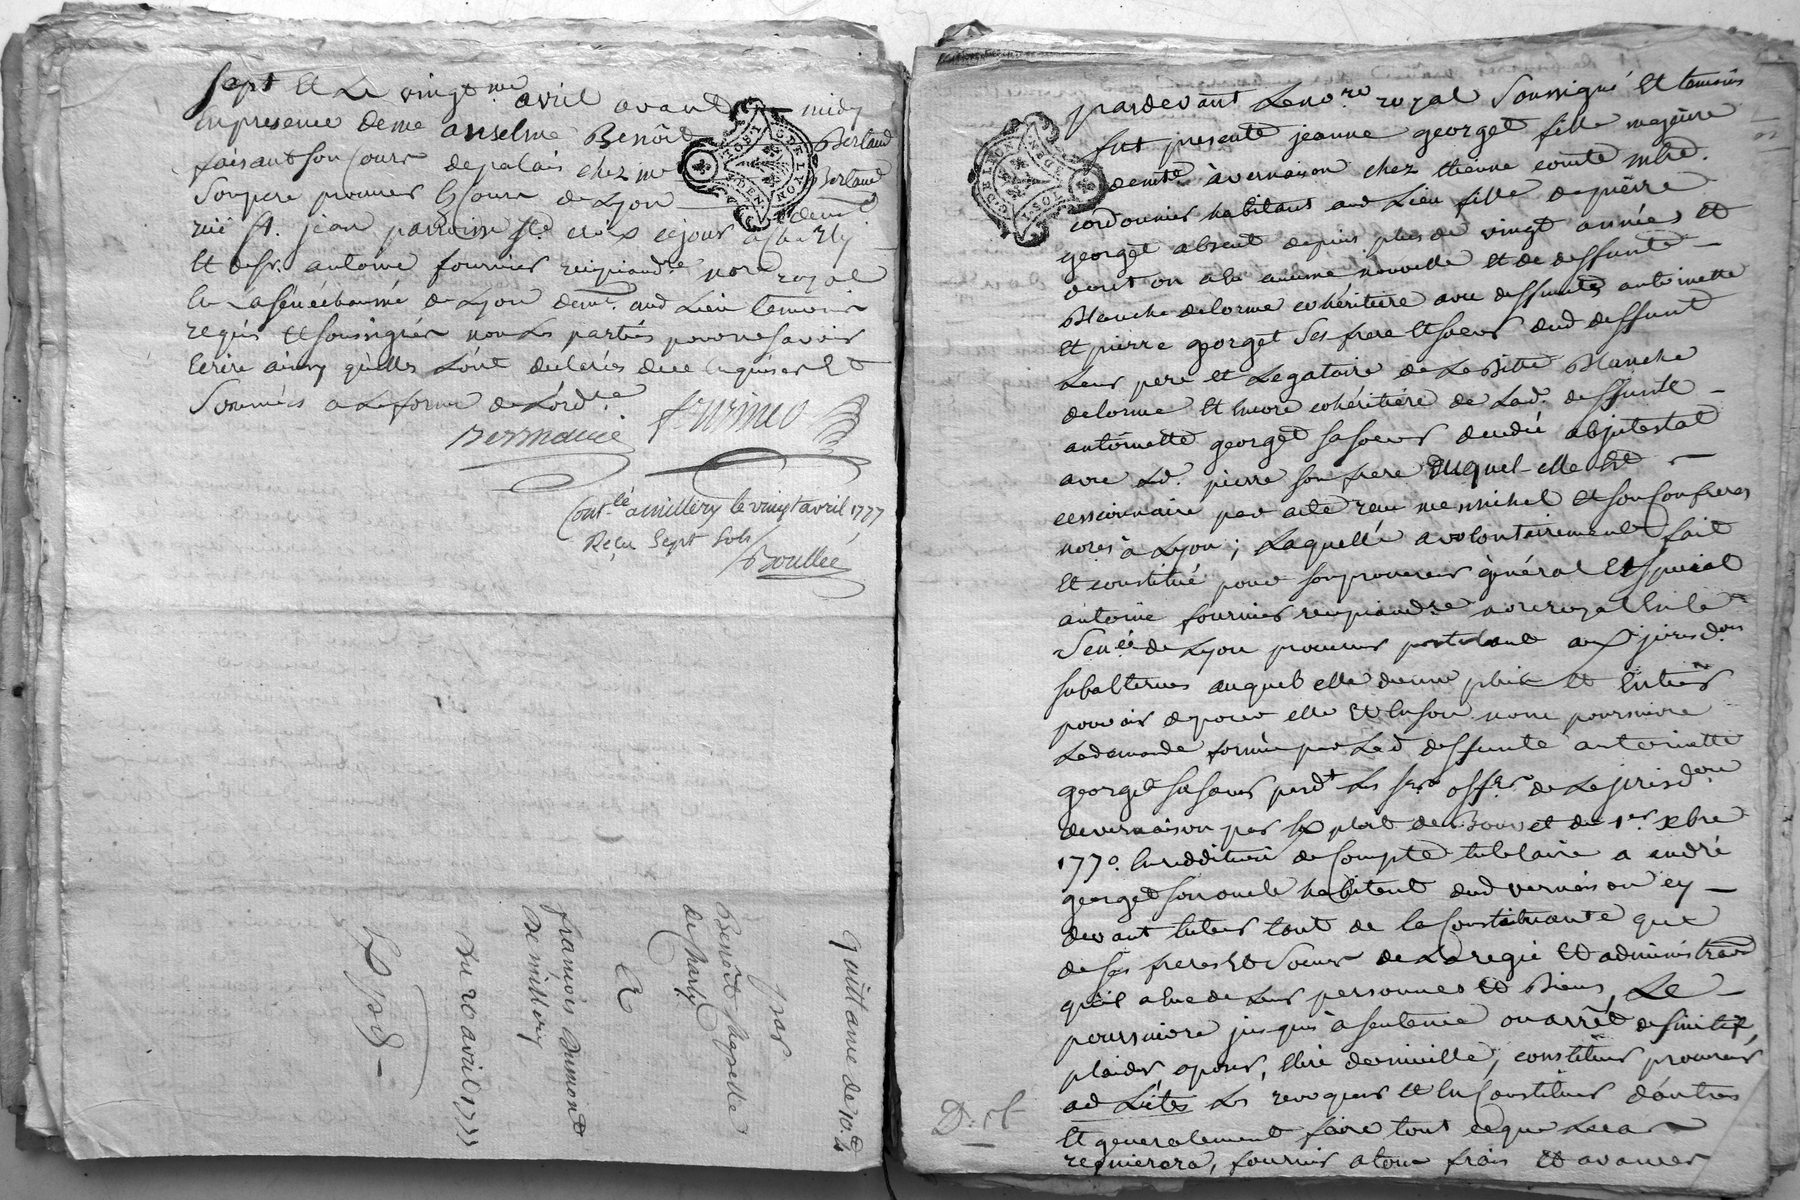 Sept Et Le vingt me avril avant midy
En presence de me anselme Benoît Berlaud
faisant son Cours de palais chez me Berlaud
Son pere procureur Es Cours de Lyon demt
rüe St. jean parroisse Ste croix ce jour a Charly
Et de Sr. antoine fournier recipiendre nore royal
En La sénéchaussée de Lyon demt. aud Lieu temoins
requis Et soussignés non Les parties pour ne savoir
Ecrire ainsy qu'elles L'ont declarés de ce Enquises Et
Sommés a La forme de L'ordce
fournier
Contlé a millery le vingt avril 1777
Reçu Sept Sols
Boullée
quittance de 10.
par
Benoît
de Charly
a
françois dumond
de millery
du 20 avril 1777
Exp.
G. DE LYON
pardevant Le nore royal Soussigné Et temoins
fut presente jeanne georget fille majeure
demte à vernaison chez Etienne comte mtre.
cordonnier habitant aud Lieu fille de pierre
georget absent depuis plus de vingt années et
dont on a eu aucune nouvelle et de deffunte
Blanche delorme cohéritiere avec deffunts antoinette
Et pierre georget Ses frere Et soeur dud deffunt
Leur pere et Legataire de Laditte Blanche
delorme Et Encore cohéritiére de Lad. deffunte
antoinette georget sa soeur decedée abintestat
avec Led. pierre son frere duquel elle Est
cessionnaire par acte reçu me michel et son Confrere
nores à Lyon ; Laquelle a volontairement fait
Et constitué pour son procureur général Et Special
antoine fournier recipiendre nore royal En la
Senée de Lyon procureur postulant aux jurisdons
subalternes auquel elle donne plein et Entier
pouvoir de pour elle et En son nom poursuivre
La demande formée par Lad deffunte antoinette
georget sa soeur pardt Les srs offers de La jurisdon
de vernaison par Exploit de Bouvet du 1er xbre
1770. En reddition de Compte tutelaire a andré
georget son oncle habitant dud vernaison cy
devant tuteur tant de la Constituante que
de ses freres Et Soeur de La regie Et administraon
qu'il a eue de Leur personnes Et Biens, Le
poursuivre jusques à sentence ou arrêt definitif,
plaider oposer, Elire domicille, constituer procureur
ad Lites Les revoquer Et En Constituer d'autres
Et generalement faire tout ce que Le cas
requierera, fournir a tous frais Et avances